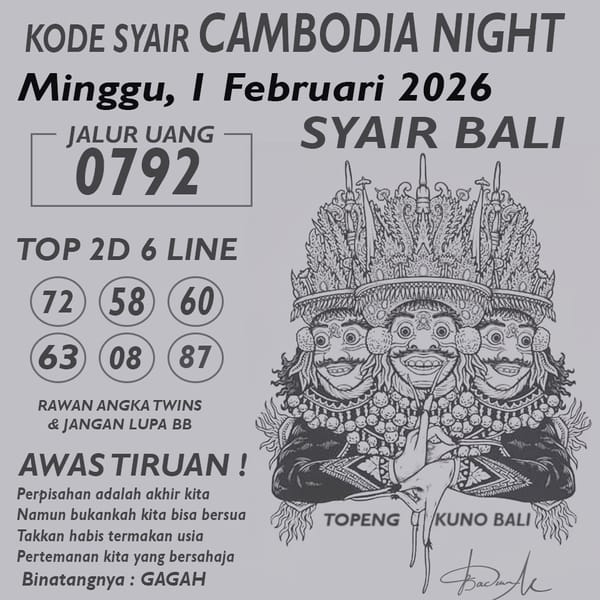 KODE SYAIR CAMBODIA NIGHT
Minggu, 1 Februari 2026
JALUR UANG
0792
SYAIR BALI
TOP 2D 6 LINE
72 58 60
63 08 87
RAWAN ANGKA TWINS
& JANGAN LUPA BB
AWAS TIRUAN !
Perpisahan adalah akhir kita
Namun bukankah kita bisa bersua
Takkan habis termakan usia
Pertemanan kita yang bersahaja
Binatangnya : GAGAH
TOPENG KUNO BALI